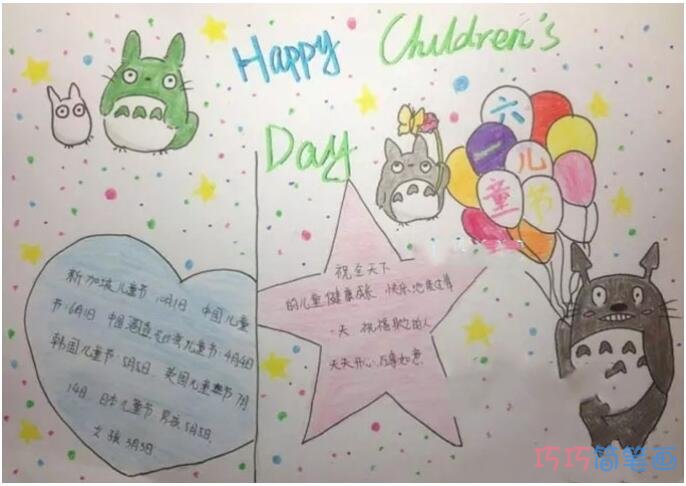 Happy Children's
Day
六
一
儿
童节
新加坡儿童节:10月1日 中国儿童
节:6月1日 中国香港台湾儿童节:4月4日
韩国儿童节:5月5日、英国儿童节7月
14日、日本儿童节:男孩5月5日,
女孩3月3日
祝全天下
的儿童健康成长 快乐地度过每
一天 祝福
天天开心,万事如意.
巧巧简笔画